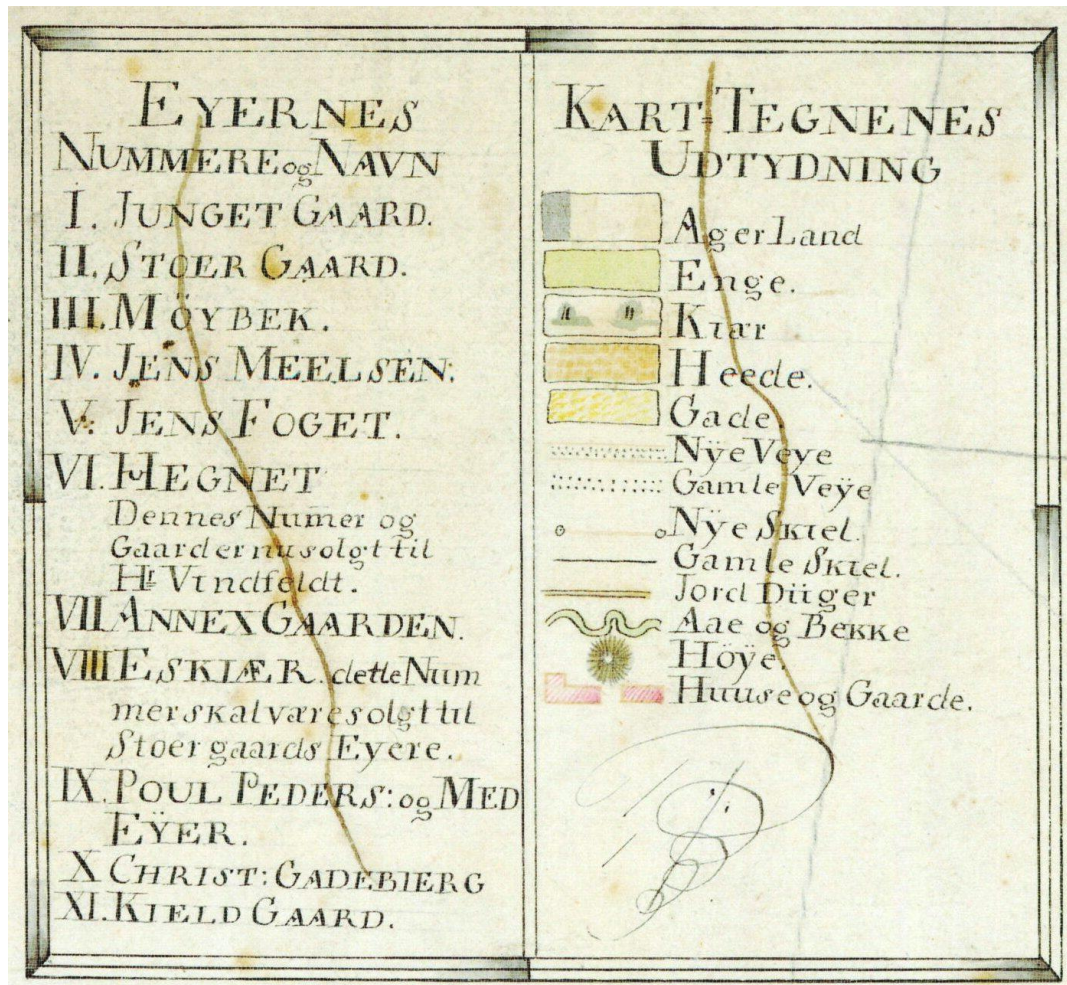 EYERNES
NUMMERE og NAVN
I. JUNGET GAARD.
II. STOER GAARD.
III. MÖYBEK.
IV. JENS MEELSEN:
V. JENS FOGET.
VI. HEGNET
Dennes Numer og
Gaarder nu solgt til
Hr Vindfeldt.
VII. ANNEX GAARDEN.
VIII ESKIÆR. dette Num
mer skal være solgt til
Stoer gaards Eyere.
IX. POUL PEDERS: og MED
EŸER.
X CHRIST: GADEBIERG
XI. KIELD GAARD.
KART=TEGNENES
UDTYDNING
Ager Land
Enge.
Kiær
Heede.
Gade.
Nÿe Veye
Gamle Veÿe
Nÿe Skiel.
Gamle Skiel.
Jord Diiger
Aae og Bekke
Höÿe.
Huuse og Gaarde.